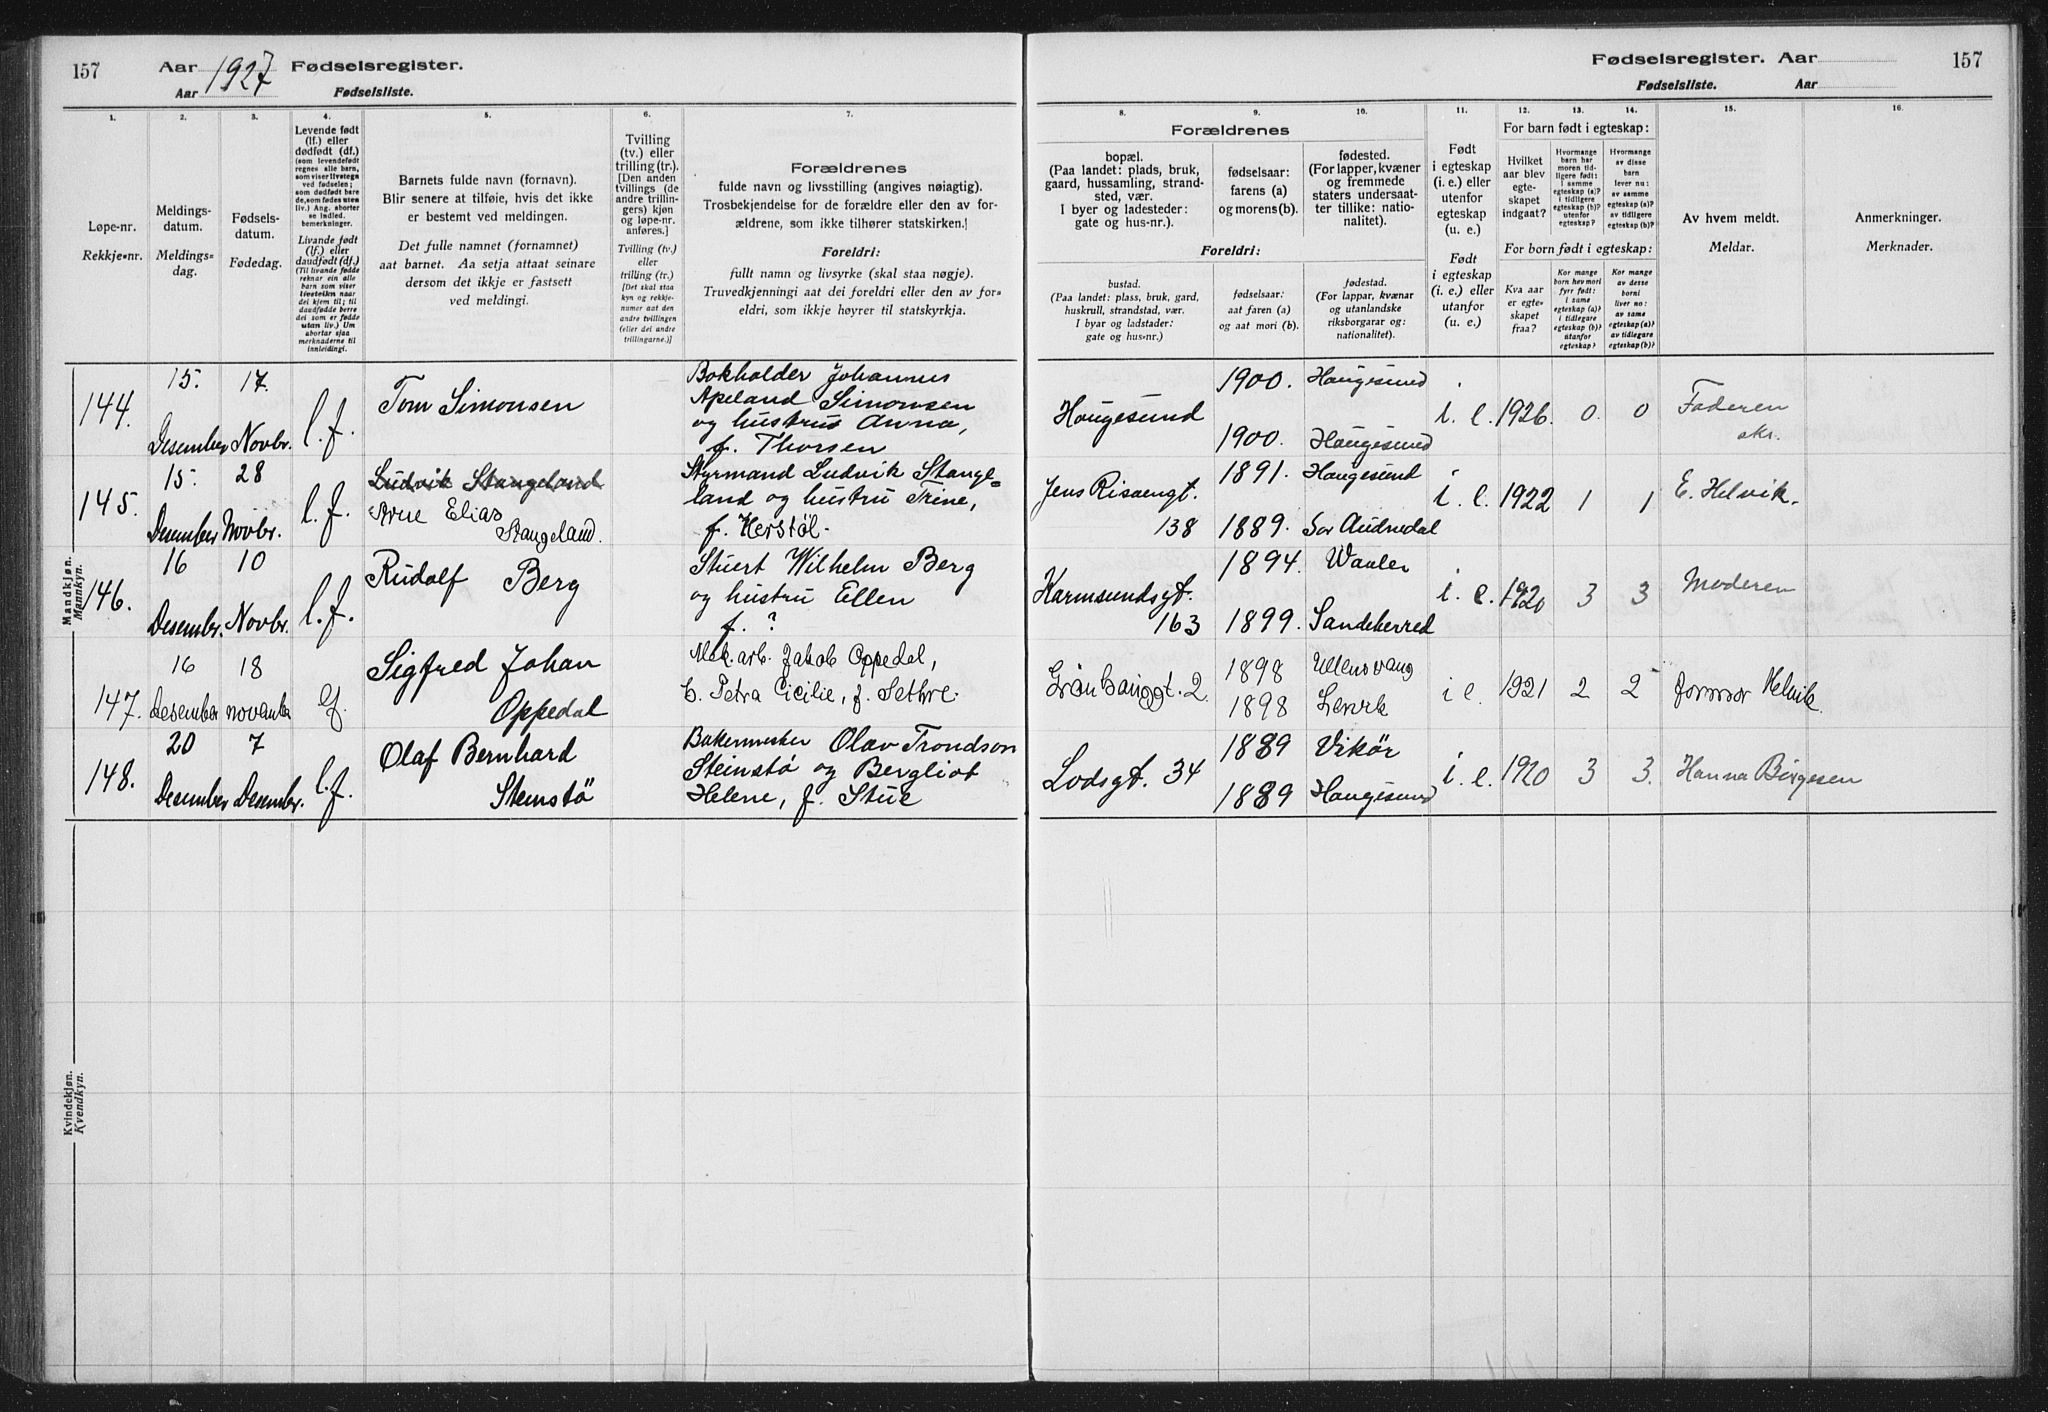 157 Aar 1927 Fødselsregister.
Aar Fødselsliste.
Fødselsregister. Aar 157
Fødselsliste. Aar
1. 2. 3. 4. 5. 6. 7. 8. 9. 10. 11. 12. 13. 14. 15. 16.
Løpe-nr.
Rekkje-nr.
Meldings-
datum.
Meldings-
dag.
Fødsels-
datum.
Fødedag.
Levende født
(lf.) eller
dødfødt (df.)
(som levendefødt
regnes alle barn,
som viser livstegn
ved fødselen;
som dødfødt bare
de, som fødes uten
liv.) Ang. aborter
se indled.
bemerkninger.
Livande født
(lf.) eller
daudfødt (df.)
(Til livande fødde
reknar ein alle
barn som viser
livsteikn naar
dei kjem til; til
daudfødde berre
dei som er fødde
utan liv.) Um
abortar sjaa
merknaderne til
innleidingi.
Barnets fulde navn (fornavn).
Blir senere at tilføie, hvis det ikke
er bestemt ved meldingen.
Det fulle namnet (fornamnet)
aat barnet. Aa setja attaat seinare
dersom det ikkje er fastsett
ved meldingi.
Tvilling
(tv.) eller
trilling (tr.).
[Den anden
tvillings (de
andre trillin-
gers) kjøn
og løpe-nr.
anføres.]
Tvilling (tv.)
eller
trilling (tr.)
[Det skal staa
kyn og rekkje-
numer aat den
andre tvillingen
(eller dei andre
trillingarne.)]
Forældrenes
fulde navn og livsstilling (angives nøiagtig).
Trosbekjendelse for de forældre eller den av for-
ældrene, som ikke tilhører statskirken.
Foreldri:
fullt namn og livsyrke (skal staa nøgje).
Truvedkjenningi aat dei foreldri eller den av for-
eldri, som ikkje høyrer til statskyrkja.
Forældrenes
bopæl.
(Paa landet: plads, bruk,
gaard, hussamling, strand-
sted, vær.
I byer og ladesteder:
gate og hus-nr.).
fødselsaar:
farens (a)
og morens (b).
fødested.
(For lapper, kvæner
og fremmede
staters undersaat-
ter tillike: natio-
nalitet).
Foreldri:
bustad.
(Paa landet: plass, bruk, gard,
huskrull, strandstad, vær.
I byar og ladstader:
gate og hus-nr.)
fødselsaar:
aat faren (a)
og aat mori (b).
fødestad.
(For lappar, kvænar
og utanlandske
riksborgarar og:
nationalitet).
Født
i egteskap
(i. e.) eller
utenfor
egteskap
(u. e.)
Født
i egteskap
(i. e.) eller
utanfor
(u. e.)
For barn født i egteskap:
Hvilket
aar blev
egte-
skapet
indgaat?
Hvormange
barn har
moren tid-
ligere født:
i samme
egteskap (a)?
i tidligere
egteskap (b)?
utenfor
egteskap?
Hvormange
av disse
barn
lever nu:
av samme
egteskap (a)?
av tidligere
egteskap (b)?
For born født i egteskap:
Kva aar
er egte-
skapet
fraa?
Kor mange
born hev mori
fyrr født:
i same
egteskap (a)?
i tidlegare
egteskap (b)?
utanfor
egteskap?
Kor mange
av desse
borni
liver no:
av same
egteskap (a)?
av tidlegare
egteskap (b)?
Av hvem meldt.
Meldar.
Anmerkninger.
Merknader.
Mandkjøn.
Mannkyn.
144. 15. Desember 17. Novbr. l.f. Tom Simonsen
Bokholder Johannes
Apeland Simonsen
og hustru Anna,
f. Thorsen
Haugesund 1900. Haugesund
1900. Haugesund
i. e. 1926. 0. 0 Faderen
skr.
145. 15. Desember 28 Novbr. l.f. Ludvik Stangeland
Arne Elias
Stangeland.
Styrmand Ludvik Stange-
land og hustru Trine,
f. Herstøl.
Jens Risøengt.
138
1891. Haugesund
1889. Sør Audnedal
i. e. 1922 1 1 E. Helvik.
146. 16 Desembr. 10 Novbr. l.f. Rudolf Berg
Stuert Wilhelm Berg
og hustru Ellen
f. ?
Karmsundsgt.
163
1894. Vaaler
1899. Sandeherred
i. e. 1920 3 3 Moderen
147. 16 Desember 18 november lf. Sigfred Johan
Oppedal
Mek. arb. Jakob Oppedal,
Petra Cicilie, f. Sethre.
Grønhauggt. 2. 1898 Ullensvang
1898
i e. 1921 2 2 jormor Helvik.
148. 20 Desember 7 Desembr. l.f. Olaf Bernhard
Steinstö
Bakermester Olav Trondson
Steinstö og Bergliot
Helene, f. Stue
Lodsgt. 34 1889 Vikör
1889 Haugesund
i. e. 1920 3 3. Hanna Börgesen
Kvindekjøn.
Kvendkyn.